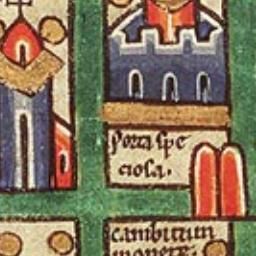 porta spe
ciosa.
cambitium
monete